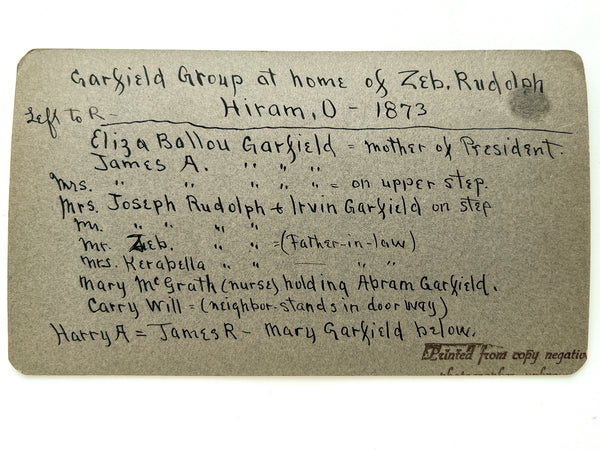 Garfield Group at home of Zeb. Rudolph
Hiram, O - 1873
Left to R-
Eliza Ballou Garfield = mother of President.
James A. " " "
Mrs. " " " " " = on upper step.
Mrs. Joseph Rudolph & Irvin Garfield on step
Mr. " " "
Mr. Zeb. " " = (Father-in-law)
Mrs. Kerabella " " — " "
Mary McGrath (nurse) holding Abram Garfield.
Carry Will = (neighbor-stands in doorway)
Harry A = James R - Mary Garfield below.
Printed from copy negativ